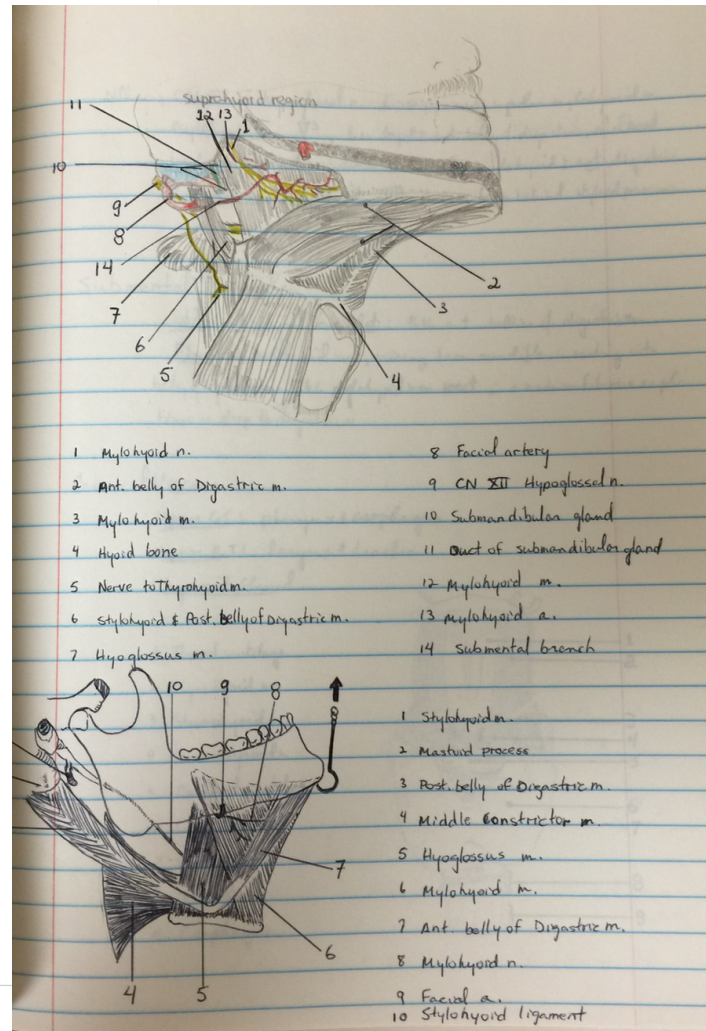 suprahyoid region
11
12 13 1
10
9
8
14
7
6
5
2
3
4
1 Mylohyoid n.
2 Ant. belly of Digastric m.
3 Mylohyoid m.
4 Hyoid bone
5 Nerve to Thyrohyoid m.
6 Stylohyoid & Post. belly of Digastric m.
7 Hyoglossus m.
8 Facial artery
9 CN XII Hypoglossal n.
10 Submandibular gland
11 Duct of submandibular gland
12 Mylohyoid m.
13 Mylohyoid a.
14 Submental branch
10 9 8
7
6
4 5
1 Stylohyoid m.
2 Mastoid process
3 Post. belly of Digastric m.
4 Middle Constrictor m.
5 Hyoglossus m.
6 Mylohyoid m.
7 Ant. belly of Digastric m.
8 Mylohyoid n.
9 Facial a.
10 Stylohyoid ligament